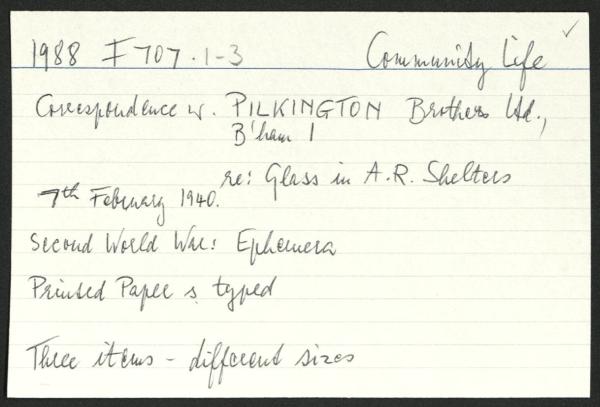 1988 F707.1-3 Community Life
Correspondence w. PILKINGTON Brothers Ltd.,
B'ham 1
re: Glass in A.R. Shelters
7th February 1940.
Second World War: Ephemera
Printed Paper & typed
Three items - different sizes